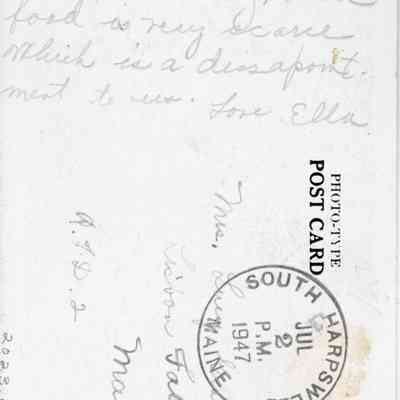 food is very scarce
which is a dissapoint-
ment to us. Love Ella
PHOTO-TYPE
POST CARD
Mrs.
Lisbon Fal
R.F.D. 2
SOUTH HARPSWE
JUL
2
P.M.
1947
MAINE
2022.